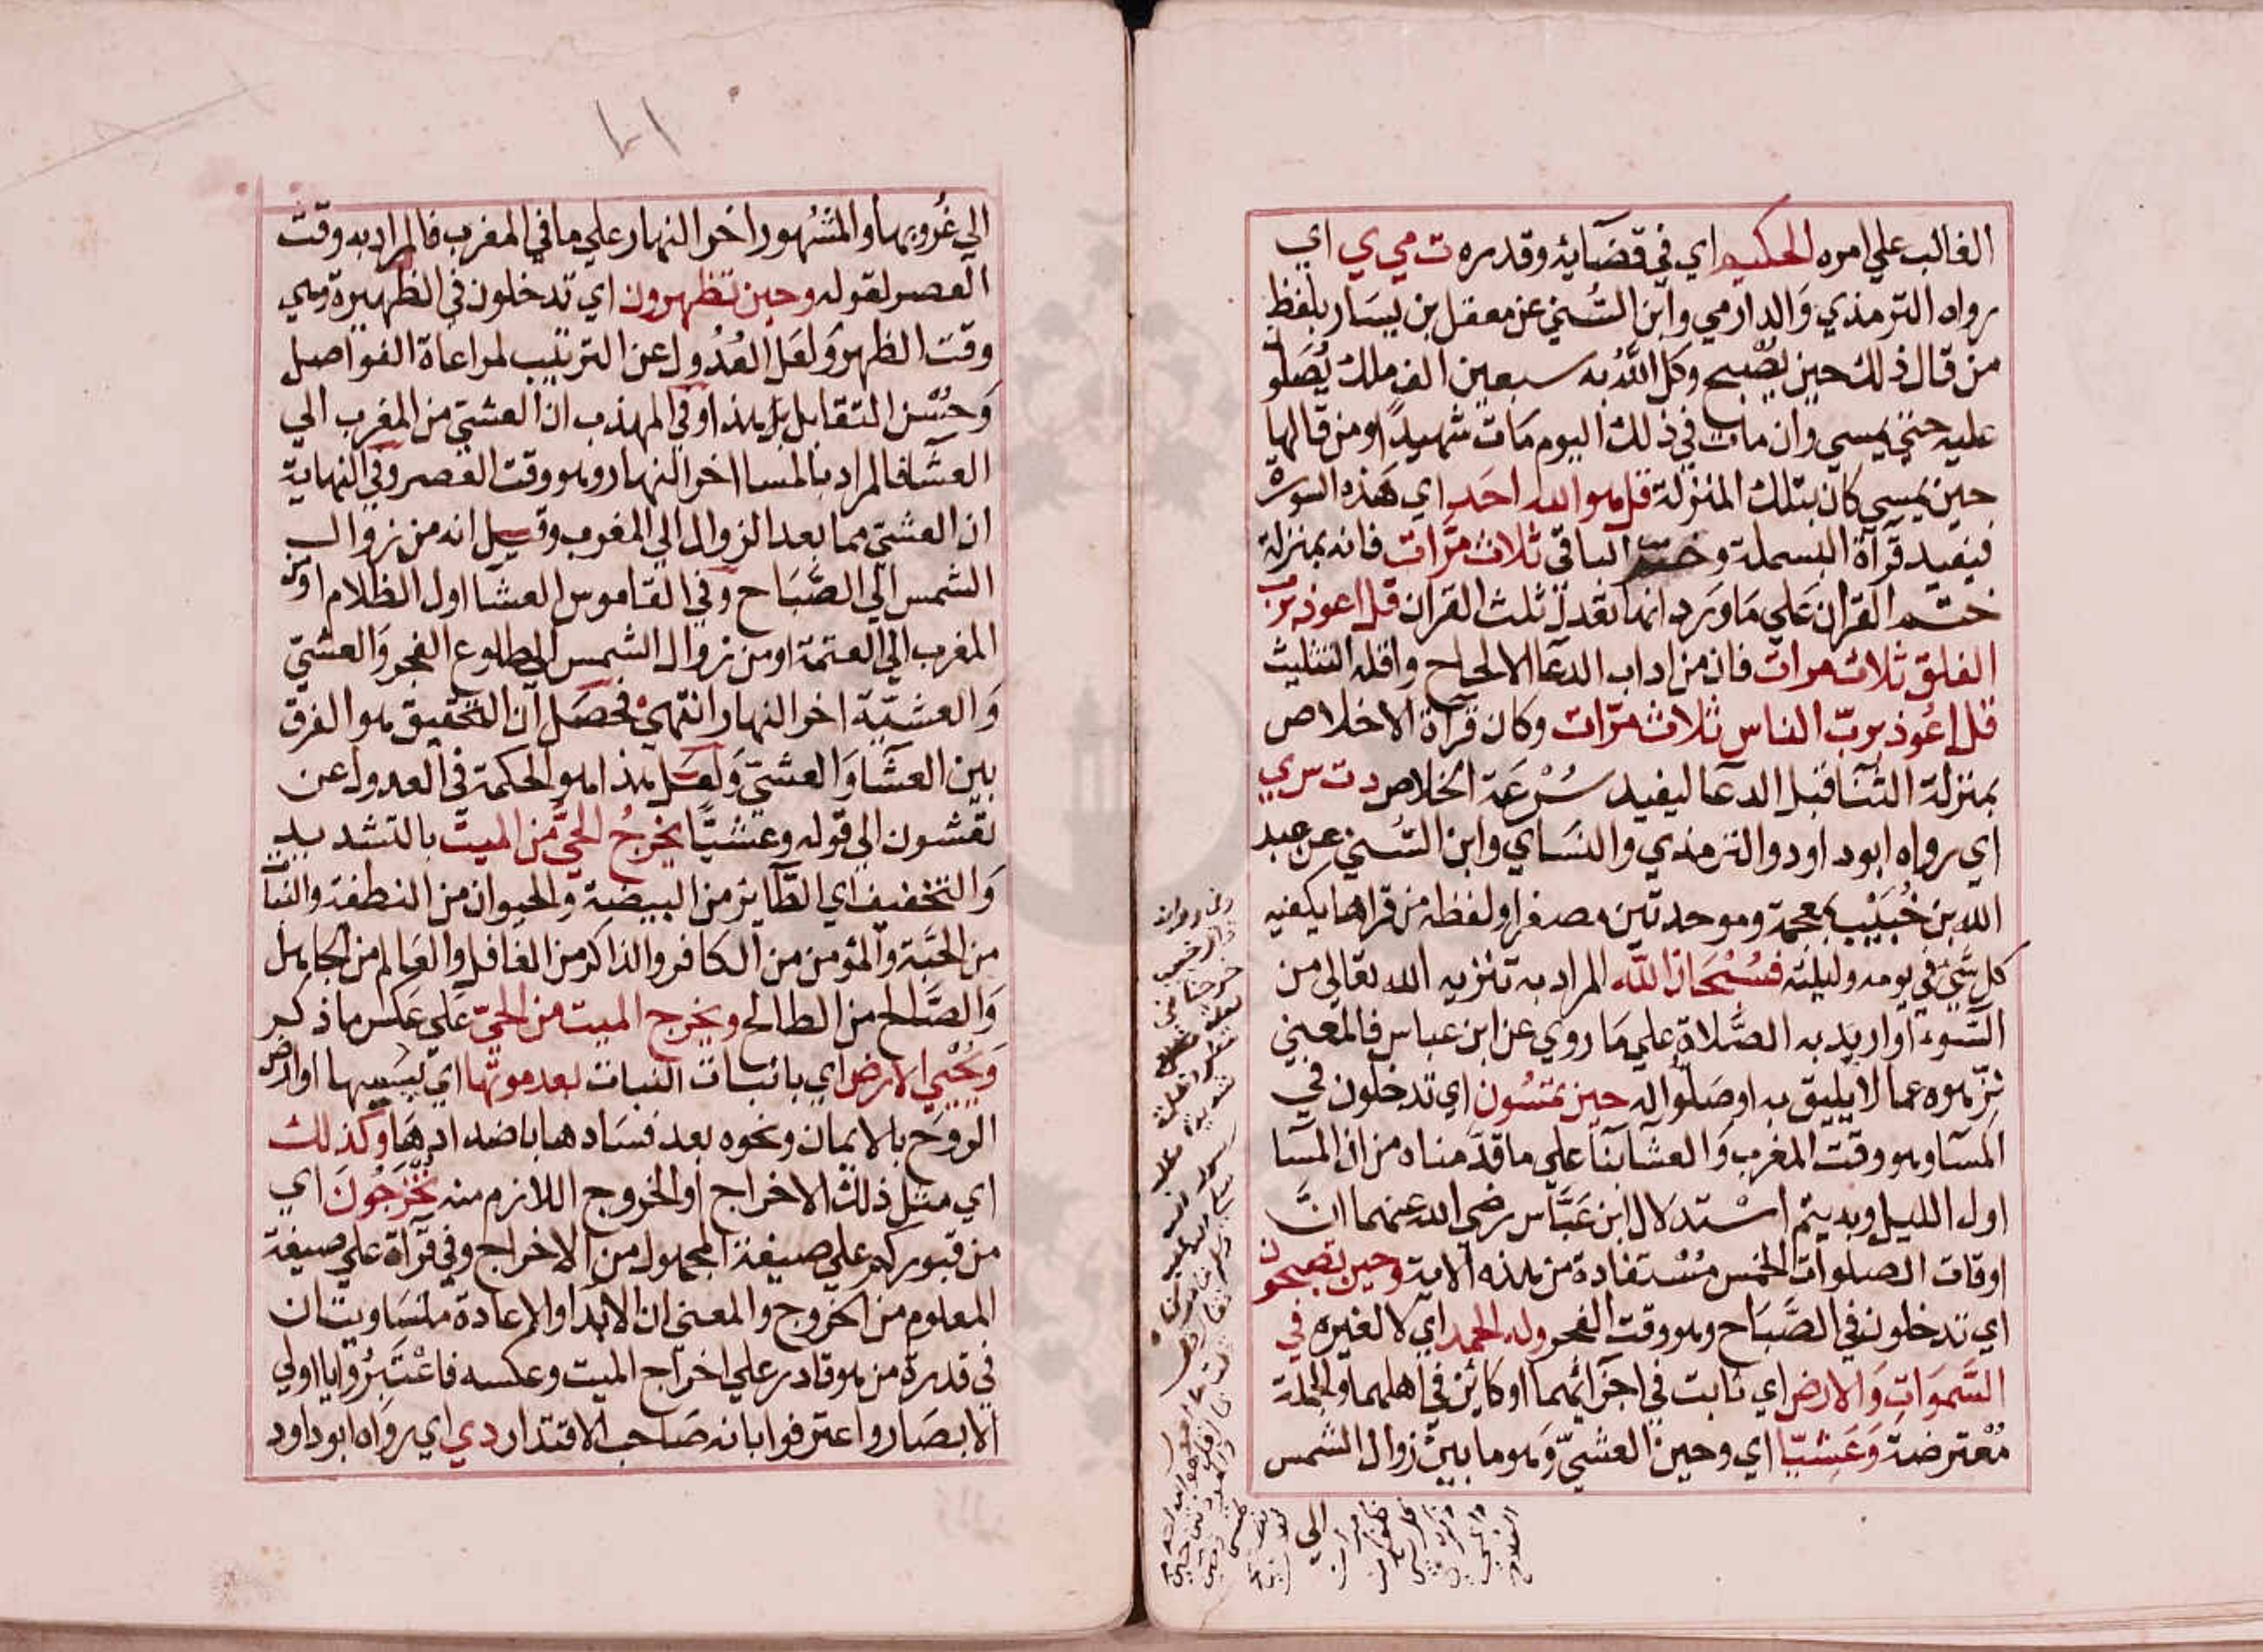 الغالب علي امره الحكيم اي في قضآيه وقدره ت مي ي اي
رواه الترمذي وَالدارمي وابن السُني عن معقل بن يسَار بلفظ
من قال ذلك حين يصْبح وكل اللّه به سبعين الف ملك يُصَلو
عليه حتي يمسي وان مات في ذلك اليوم مَات شهيدًا ومن قالها
حين يمسي كان بتلك المنزلة قل هو الله احَد اي هَذه السورة
فيفيد قرآة البسملة وختم الباقي ثلاث مَرَّات فانه بمنزلة
ختم القران عَلي مَا ورد انها تعدل ثلث القران قل اعوذ برب
الفلق ثلاث مرات فان من اداب الدعآ الالحاح واقله التثليث
قل اعُوذ بربّ الناس ثلاث مرّات وكان قرآة الاخلاص
بمنزلة الثنَآ قبل الدعآ ليفيد سُرْعَة الخلاص د ت س ري
اي رواه ابو داود والترمذي والنسَاي وابن السُني عن عبد
الله بن خُبَيْب بمعجمة وموحدتين مصغرا ولفظه من قراها يكفيه
كل شَيْ في يومه وليلته فسُبْحَان اللّه المراد به تنزيه الله تعالي من
السّوء او اريد به الصَّلاة علي مَا روي عن ابن عباس فالمعني
نزّهوه عما لا يليق به او صَلّوا له حين تمْسُون اي تدخلون في
المسَآ وهو وقت المغرب وَالعشآ بنآ علي ما قدَّمناه من ان المسَآ
اول الليل وبه يتم اسْتدلال ابن عَبَّاس رضي الله عنهما انَّ
اوقات الصلوات الخمس مُسْتفادة من هذه الاية وحين تصبحون
اي تدخلون في الصَّبَاح وهو وقت الفجر وله الحمد اي لا لغيره في
السَّموَات وَالارض اي ثابت في اجزآئهما او كائن في اهلهما والجملة
مُعْترضة وَعَشيّا اي وحين العشيّ وَهو ما بين زوال الشمس
الي
الي غُروبها والمشْهور اخر النهار علي ما في المغرب فالمراد به وقت
العصر لقوله وحين تظهرون اي تدخلون في الظهيرة وهي
وقت الظهر وَلعَل العُدُول عن الترتيب لمراعاة الفواصل
وَحُسْن التقابل بل هذا وفي المهذب ان العشيّ من المغرب الي
العشآ فالمراد بالمسا اخر النهار وهو وقت العصر وفي النهاية
ان العشيّ مما بعد الزوال الي المغرب وقيل انه من زوال
الشمس الي الصَّبَاح وفي القاموس العشا اول الظلام او من
المغرب الي العتمة او من زوال الشمس الي طلوع الفجر وَالعشيّ
وَالعشيّة اخر النهار انتهيْ فحصَل ان التحقيق هو الفرق
بين العشآ وَالعشيّ وَلعَل هذا هو الحكمة في العدول عن
تعشون الي قوله وعشيّا يخرجُ الحيّ من الميت بالتشديد
وَالتخفيف اي الطّآير من البيضة والحيوان من النطفة والنبا
من الحَبّة والمُؤمن من الكافر والذاكر من الغافل والعَالم من الجاهل
وَالصَّالح من الطالح ويخرج الميت من الحيّ علي عَكس ما ذكر
وَيُحْيي الارض اي بانبَات النبات بعد موتها اي يبسها او ارض
الروح بالايمان ونحوه بعد فسَادها باضدادهَا وكذلك
اي مثل ذلك الاخراج او الخروج اللازم منه تُخْرَجُونَ اي
من قبوركم علي صيغة المجهول من الاخراج وفي قرآة علي صيغة
المعلوم من الخروج والمعني ان الابدآ والاعادة متسَاويتان
في قدرة من هو قادر علي اخرَاج الميت وعكسه فاعْتَبِرُوا يا اولي
الابصَار واعترفوا بانه صَاحب الاقتدار د ي اي رواه ابو داود